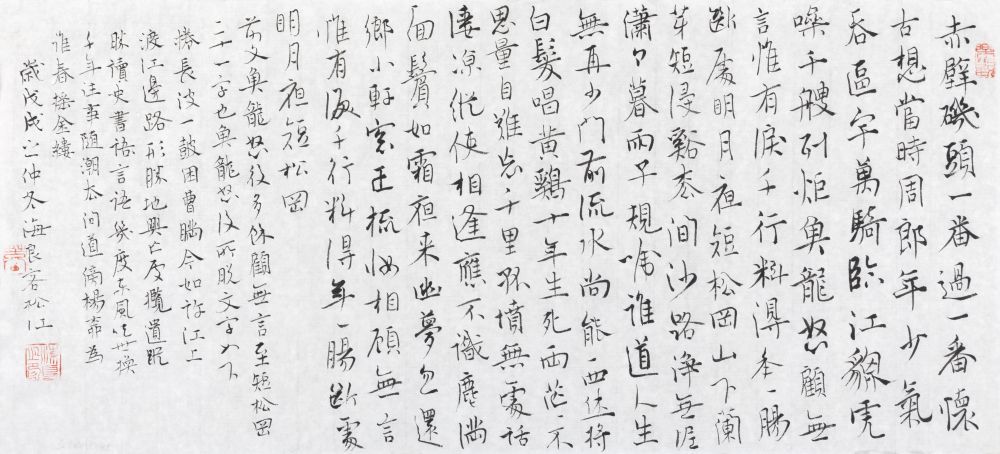 赤壁磯頭一番過一番懷
古想當時周郎年少氣
吞區宇萬騎臨江貔虎
噪千艘列炬魚龍怒顧無
言惟有淚千行料得年〻腸
斷處明月夜短松岡山下蘭
芽短浸谿松間沙路淨無泥
瀟〻暮雨子規啼誰道人生
無再少門前流水尚能西休將
白髮唱黃鷄十年生死兩茫〻不
思量自難忘千里孤墳無處話
淒涼縱使相逢應不識塵滿
面鬢如霜夜來幽夢忽還
鄉小軒窗正梳妝相顧無言
惟有淚千行料得年〻腸斷處
明月夜短松岡
前文魚龍怒後多顧無言至短松岡
二十一字也魚龍怒後所脫文字如下
捲長波一鼓困曹瞞今如許江上
渡江邊路形勝地興亡處攬遺蹤
勝讀史書語言語幾度東風吹世換
千年往事隨潮去問道傍楊柳為
誰春搖金縷
歲戊戌之仲冬海良客松江